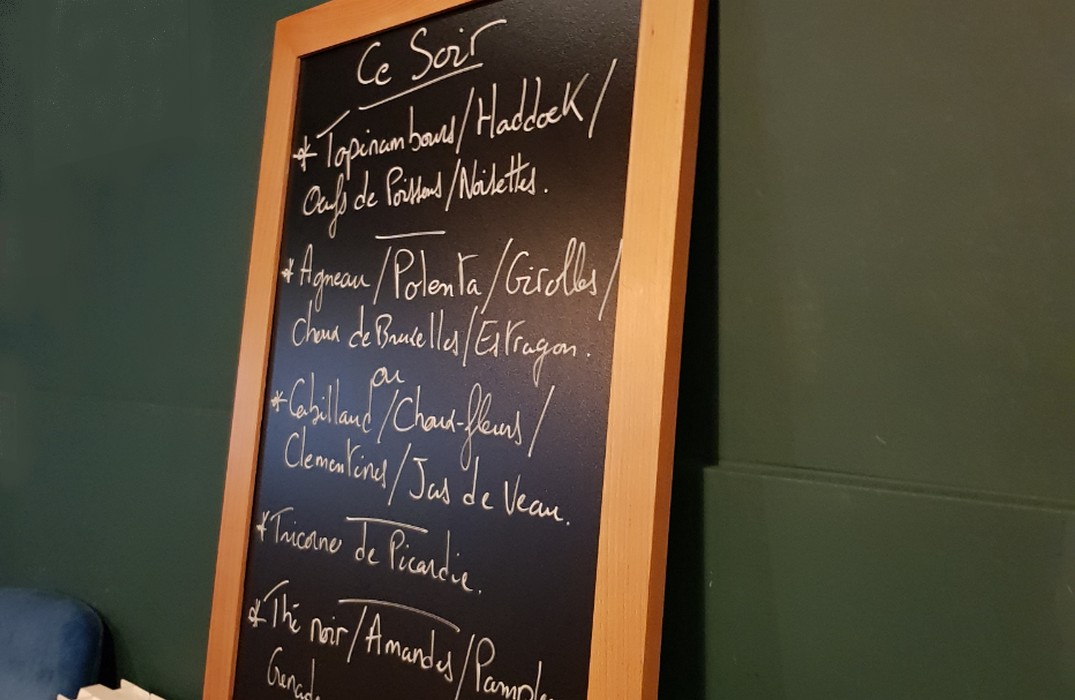 Ce Soir
* Topinambours/Haddock/
Oeufs de Poissons/Noisettes.
* Agneau/Polenta/Girolles/
choux de Bruxelles/Estragon.
ou
* Cabillaud/Choux-fleurs/
Clementines/Jus de Veau.
* Tricorne de Picardie.
* Thé noir/Amandes/